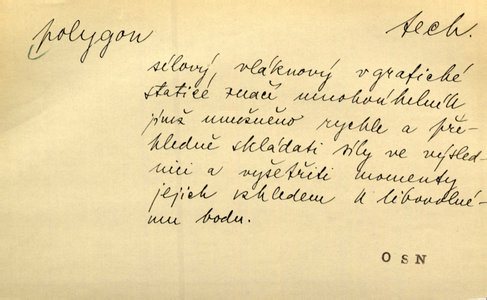 polygon tech.
silový, vláknový v grafické
statice značí mnohoúhelník
jímž umožněno rychle a pře-
hledně skládati síly ve výsled-
nici a vyšetřiti momenty
jejich vzhledem k libovolné-
mu bodu.
OSN